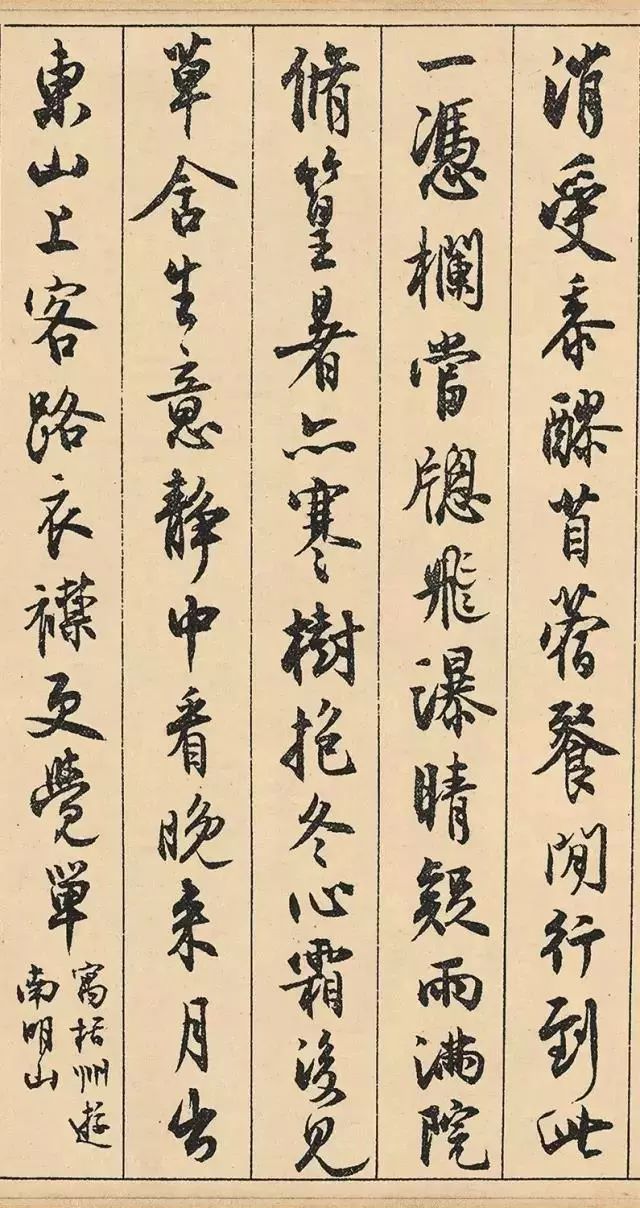 消受黍醪苜蓿餐閒行到此
一憑欄當牕飛瀑晴疑雨滿院
脩篁暑亦寒樹抱冬心霜後見
草含生意靜中看晚來月出
東山上客路衣襟更覺單
寓括州遊
南明山